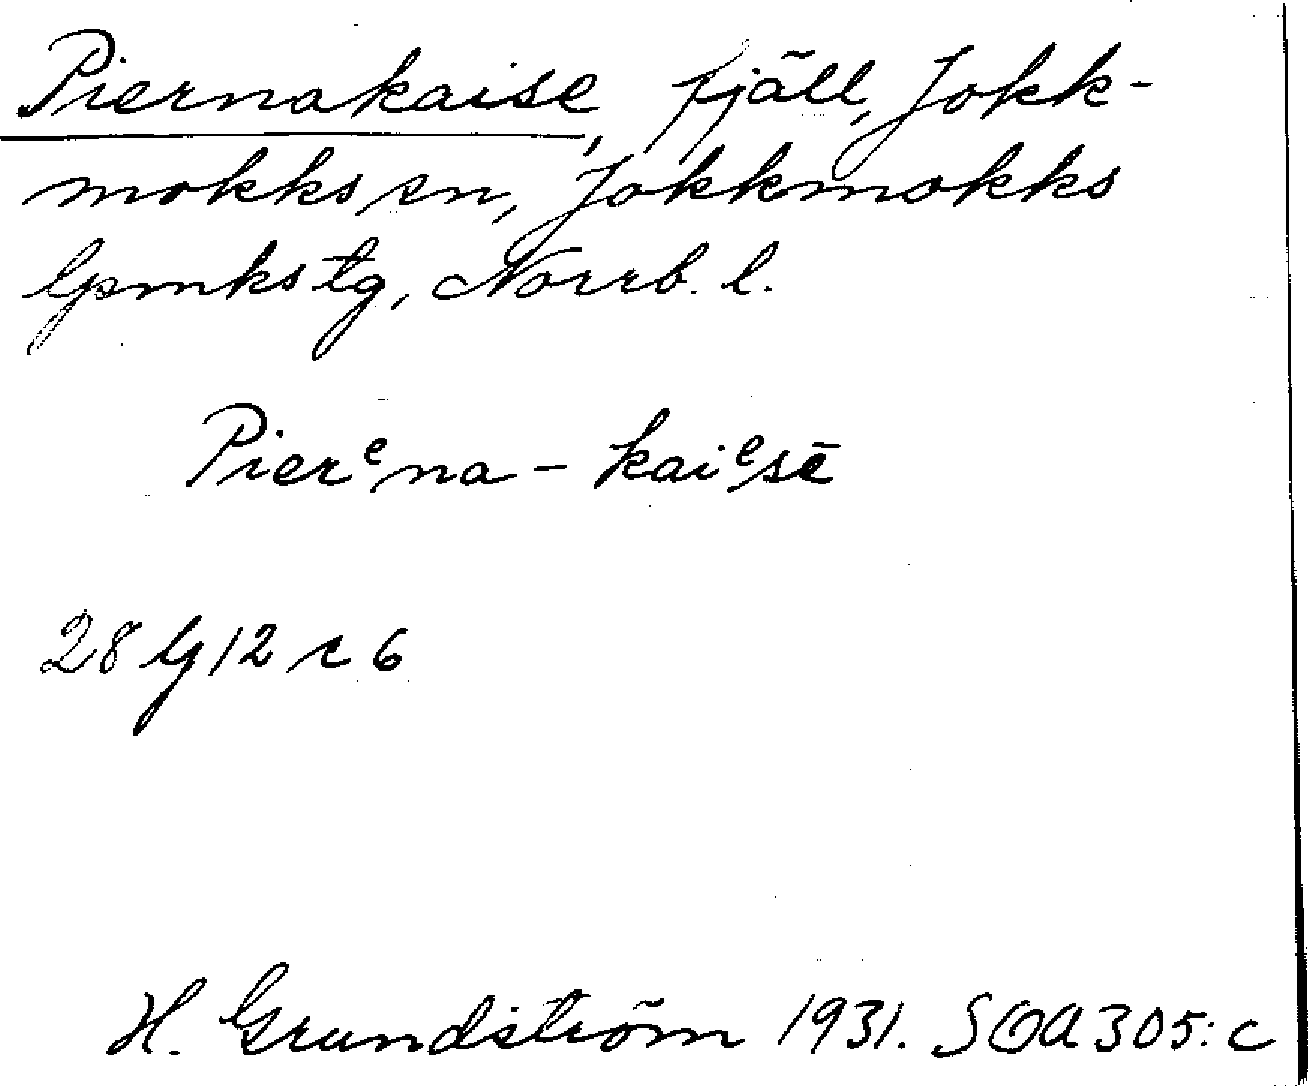 Piernakaise, fjäll, Jokk-
mokks sn, Jokkmokks
lpmks tg, Norrb. l.
Pierᵉna - kaiᵉsē
28 G 12 c 6
H. Grundström 1931. SOA 305:c